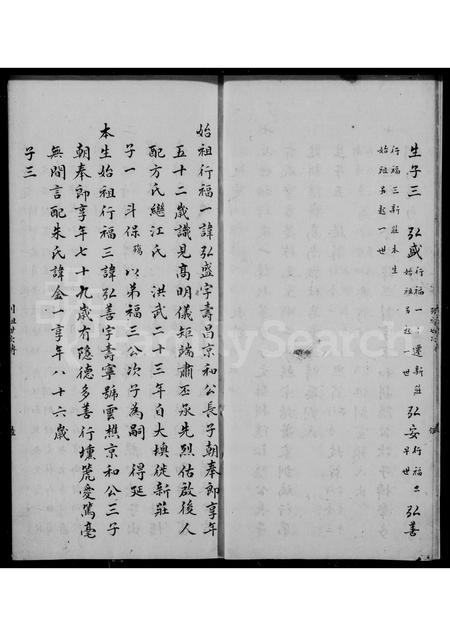 生子三　弘盛行福一遷新莊始祖另起一世　弘安行福二早世　弘善
行福三新莊本生始祖另起一世
始祖行福一諱弘盛字壽昌京和公長子朝奉郎享年
五十二歲識見高明儀矩端肅丕承先烈佑啟後人
配方氏繼江氏　洪武二十三年自大墺徙新莊
子一斗保殤以弟福三公次子為嗣　得延
本生始祖行福三諱弘善字壽寧號雲樵京和公三子
朝奉郎享年七十九歲有隱德多善行壎篪愛篤毫
無閒言配朱氏諱金一享年八十六歲
子三
FamilySearch